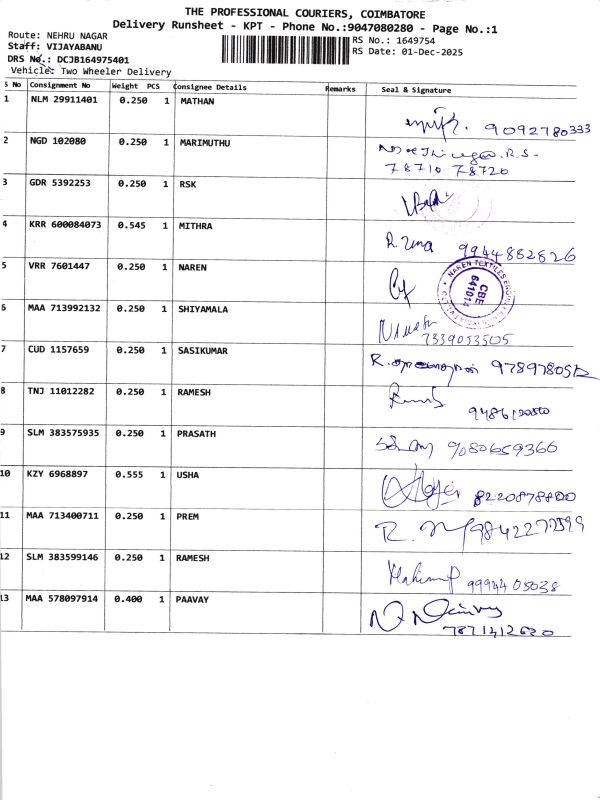 THE PROFESSIONAL COURIERS, COIMBATORE
Delivery Runsheet - KPT - Phone No.:9047080280 - Page No.:1
Route: NEHRU NAGAR
RS No.: 1649754
Staff: VIJAYABANU
RS Date: 01-Dec-2025
DRS No.: DCJB164975401
Vehicle: Two Wheeler Delivery
S No Consignment No Weight PCS Consignee Details Remarks Seal & Signature
1 NLM 29911401 0.250 1 MATHAN
9092780333
2 NGD 102080 0.250 1 MARIMUTHU
78710 78720
3 GDR 5392253 0.250 1 RSK
4 KRR 600084073 0.545 1 MITHRA
R. Uma 9944882826
5 VRR 7601447 0.250 1 NAREN
NAREN TEXTILES
CBE
641014
6 MAA 713992132 0.250 1 SHIYAMALA
7339053505
7 CUD 1157659 0.250 1 SASIKUMAR
8 TNJ 11012282 0.250 1 RAMESH
9 SLM 383575935 0.250 1 PRASATH
9080659366
10 KZY 6968897 0.555 1 USHA
8220878800
11 MAA 713400711 0.250 1 PREM
12 SLM 383599146 0.250 1 RAMESH
9994405038
13 MAA 578097914 0.400 1 PAAVAY
7871412620